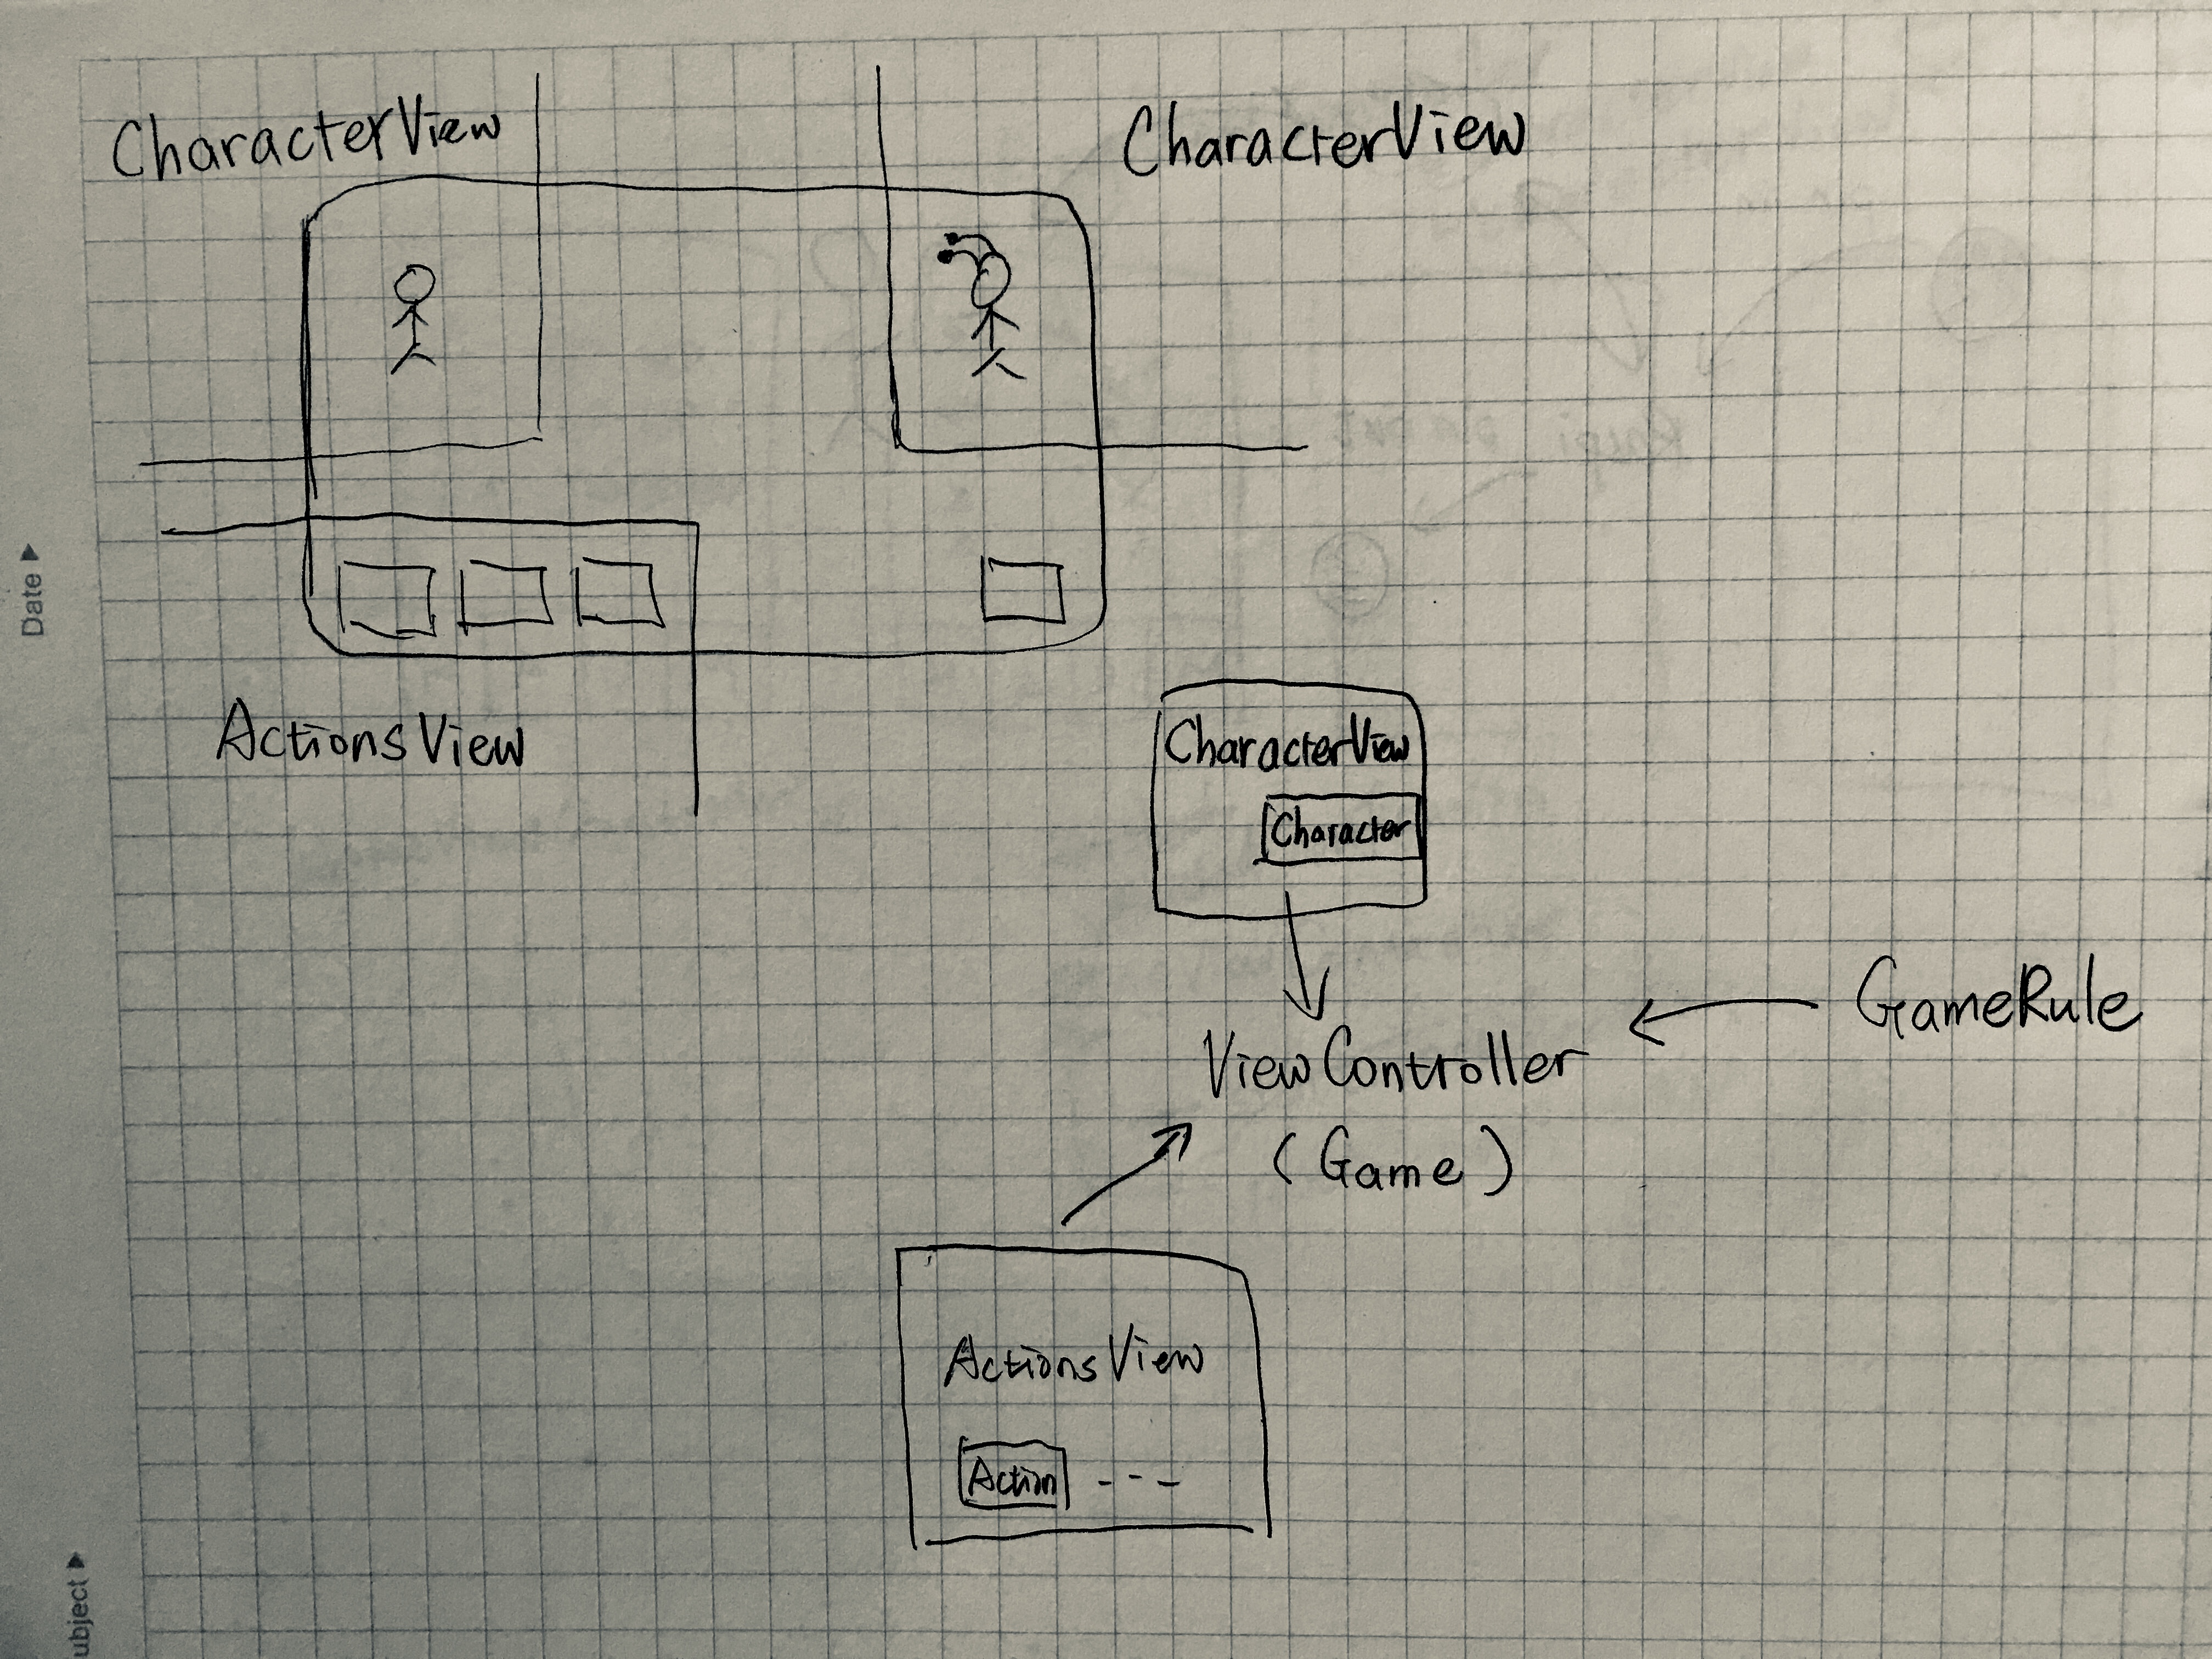 CharacterView
CharacterView
ActionsView
CharacterView
Character
GameRule
ViewController
(Game)
ActionsView
Action ---
Date
ubject